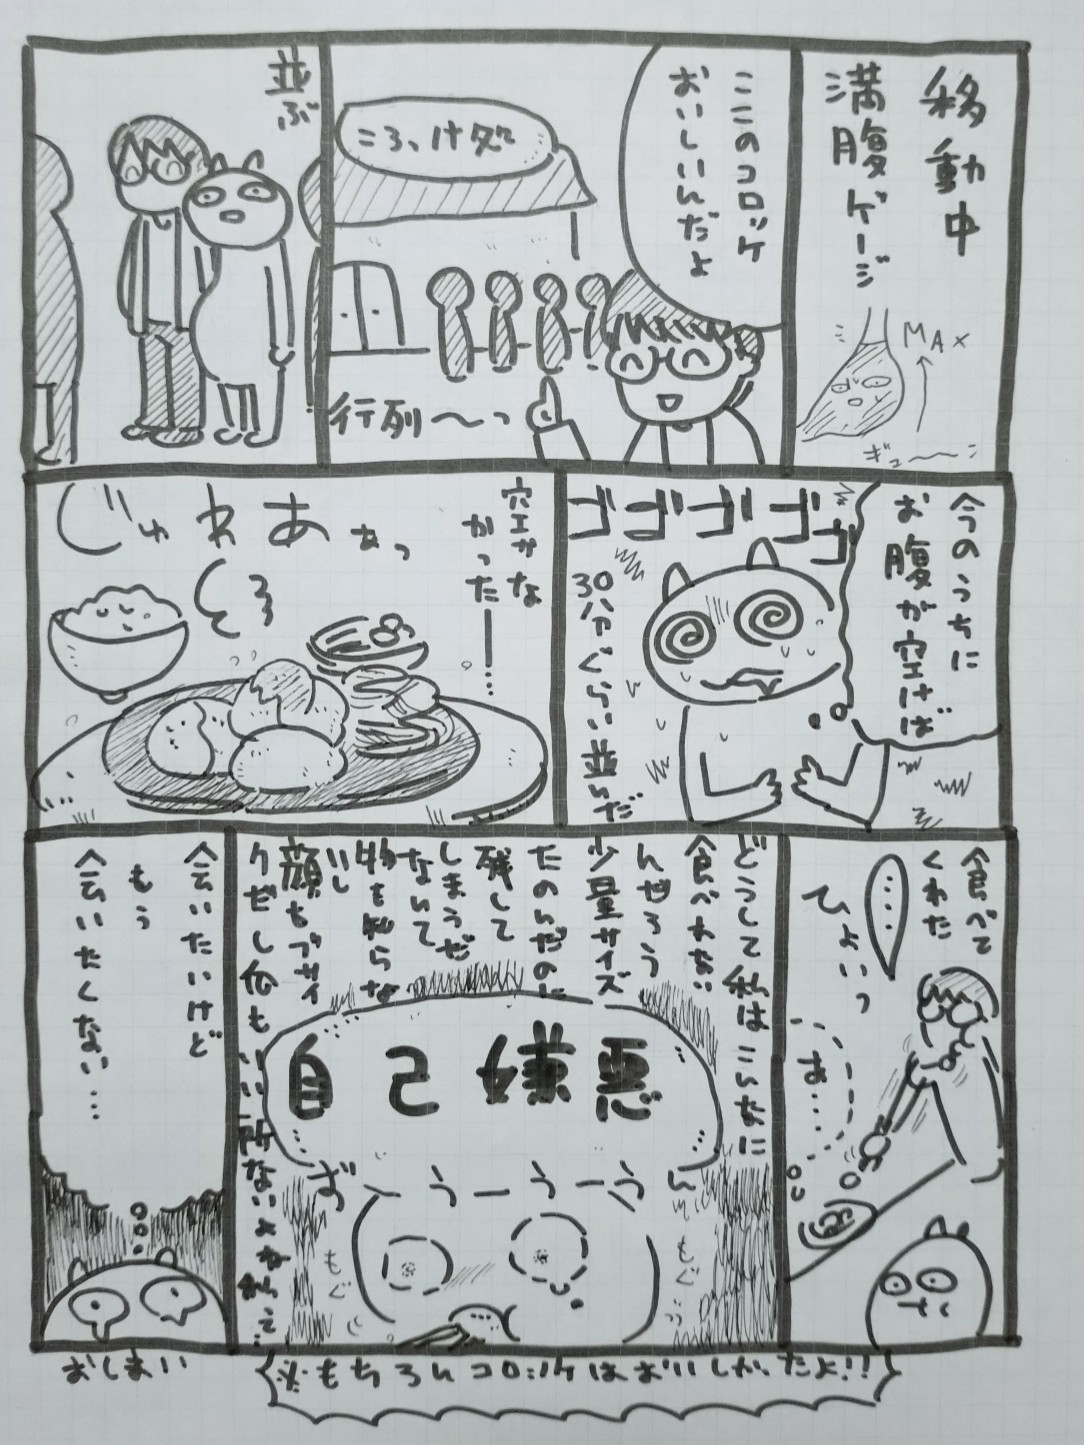 移動中
満腹ゲージ
MAX
ギュ〜〜〜
ここのコロッケ
おいしいんだよ
ころっけ処
行列〜っ
並ぶ
今のうちに
お腹が空けば
ゴゴゴゴゴ
30分ぐらい並んだ
空かな
かったー…
じゅわあぁっ
食べて
くれた
……
ひょいっ
あ…
どうして私はこんなに
食べれない
んだろう
少量サイズ
たのんだのに
残して
しまうだ
なんて
物も知らな
いし
顔もブサイ
クだし何もいい所ないよね私って…
自己嫌悪
ずーうーうーうん
もぐ
もぐ
会いたいけど
もう
会いたくない…
おしまい
※もちろんコロッケはおいしかったよ!!